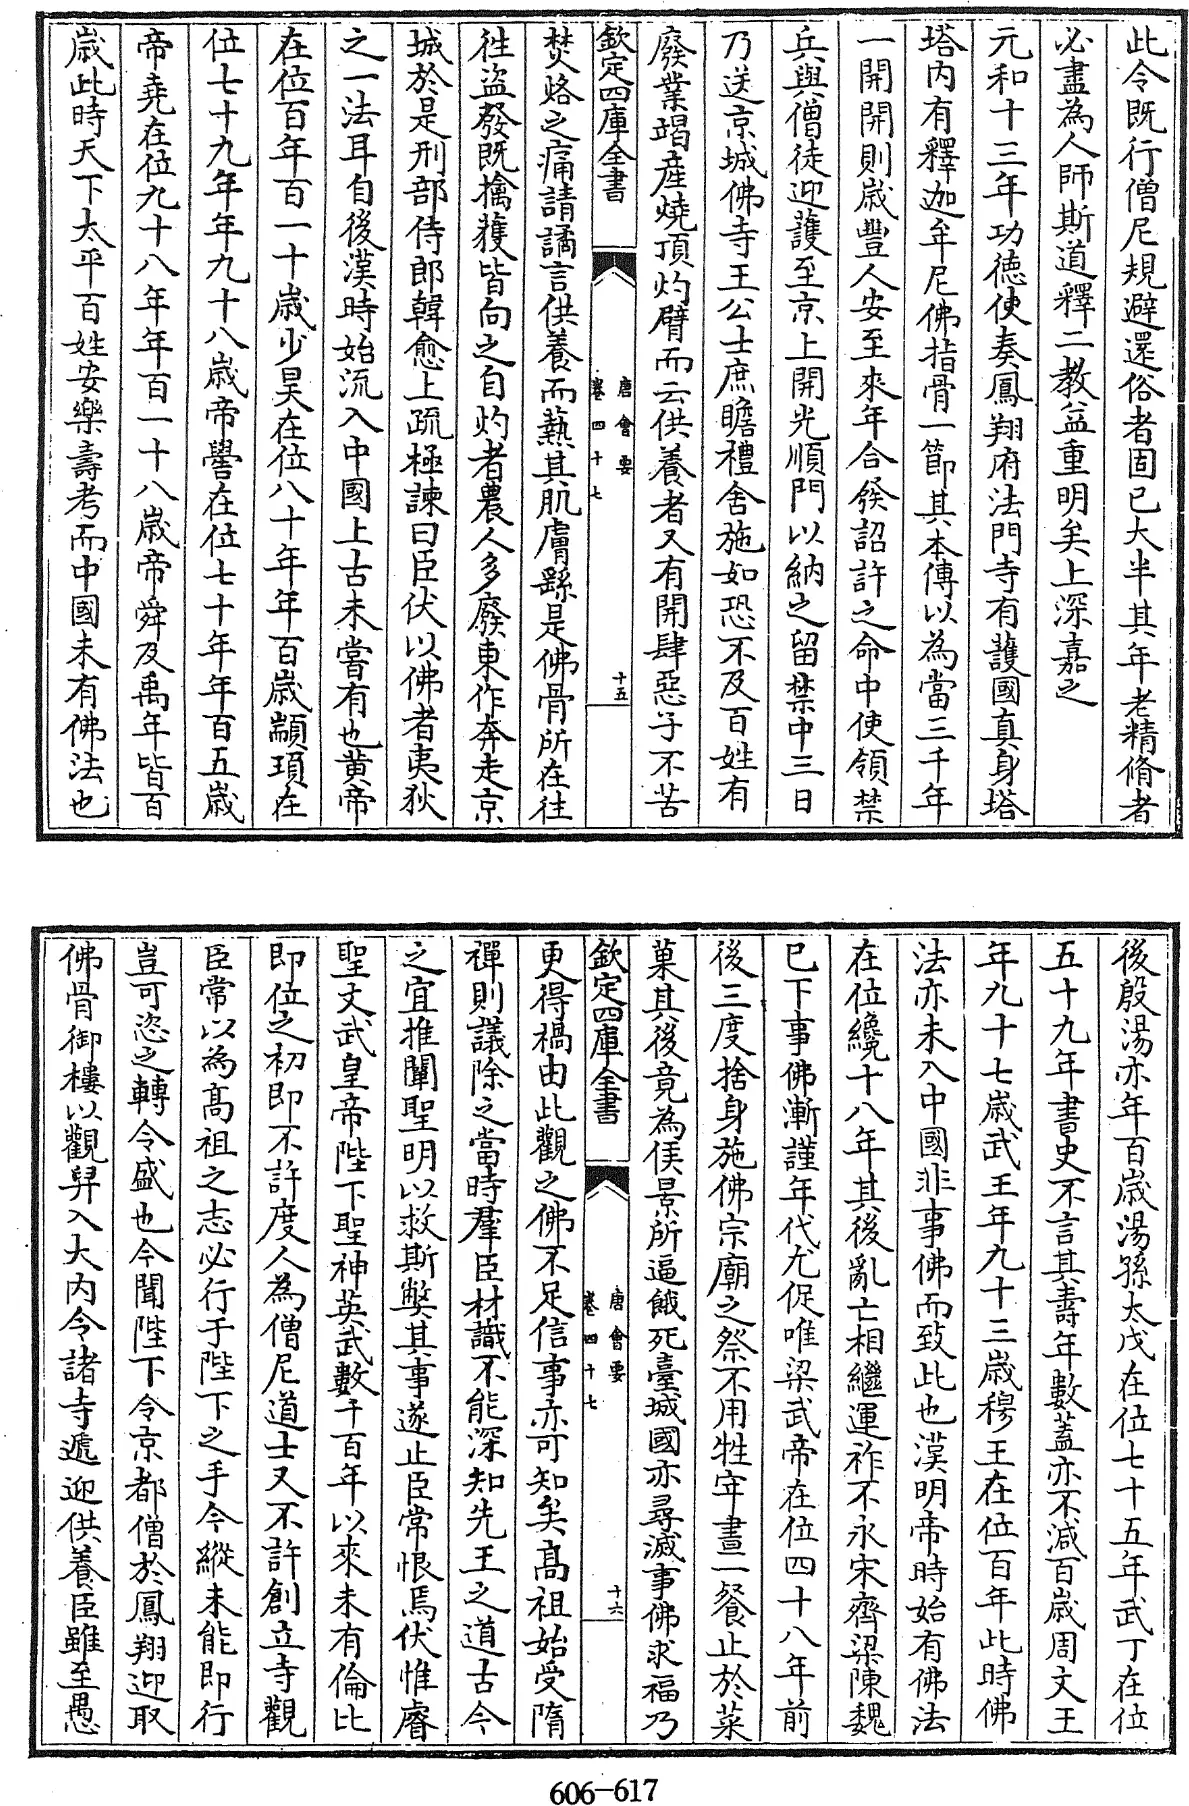 此令既行僧尼規避還俗者固已大半其年老精脩者
必盡為人師斯道釋二教益重明矣上深嘉之
元和十三年功德使奏鳳翔府法門寺有護國真身塔
塔内有釋迦牟尼佛指骨一節其本傳以為當三千年
一開開則歲豐人安至來年合發詔許之命中使領禁
兵與僧徒迎護至京上開光順門以納之留禁中三日
乃送京城佛寺王公士庶瞻禮舍施如恐不及百姓有
廢業竭産燒頂灼臂而云供養者又有開肆惡子不苦
欽定四庫全書
唐會要
卷四十七
十五
焚烙之痛請譎言供養而爇其肌膚繇是佛骨所在往
往盜發既擒獲皆向之自灼者農人多廢東作奔走京
城於是刑部侍郎韓愈上疏極諫曰臣伏以佛者夷狄
之一法耳自後漢時始流入中國上古未嘗有也黄帝
在位百年百一十歲少昊在位八十年年百歲顓頊在
位七十九年年九十八歲帝嚳在位七十年年百五歲
帝堯在位九十八年年百一十八歲帝舜及禹年皆百
歲此時天下太平百姓安樂壽考而中國未有佛法也
後殷湯亦年百歲湯孫太戊在位七十五年武丁在位
五十九年書史不言其壽年數蓋亦不減百歲周文王
年九十七歲武王年九十三歲穆王在位百年此時佛
法亦未入中國非事佛而致此也漢明帝時始有佛法
在位纔十八年其後亂亡相繼運祚不永宋齊梁陳魏
已下事佛漸謹年代尤促唯梁武帝在位四十八年前
後三度捨身施佛宗廟之祭不用牲牢晝一餐止於菜
菓其後竟為侯景所逼餓死臺城國亦尋滅事佛求福乃
欽定四庫全書
唐會要
卷四十七
十六
更得禍由此觀之佛不足信事亦可知矣高祖始受隋
禪則議除之當時羣臣材識不能深知先王之道古今
之宜推闡聖明以救斯弊其事遂止臣常恨焉伏惟睿
聖文武皇帝陛下聖神英武數千百年以來未有倫比
即位之初即不許度人為僧尼道士又不許創立寺觀
臣常以為高祖之志必行于陛下之手今縱未能即行
豈可恣之轉令盛也今聞陛下令京都僧於鳳翔迎取
佛骨御樓以觀舁入大内令諸寺遞迎供養臣雖至愚
606-617